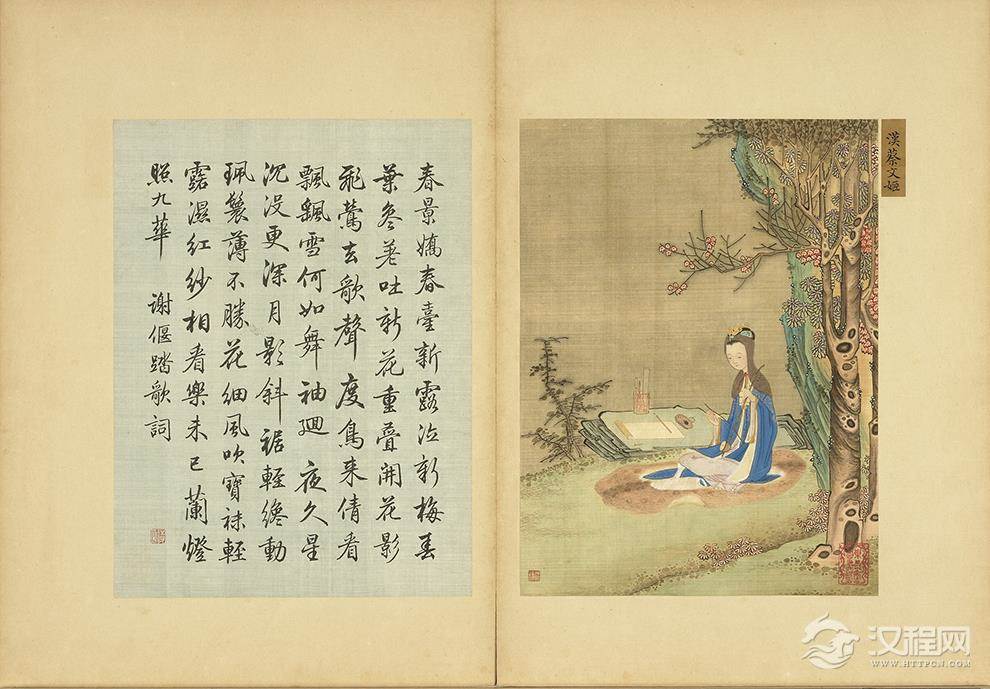 春景嬌春臺新露泣新梅春
葉參差吐新花重疊開花影
飛鶯去歌聲度鳥來倩看
飄颻雪何如舞袖迴 夜久星
沉没更深月影斜裾輕纔動
珮鬟薄不勝花細風吹寶袜輕
露濕紅紗相看樂未已蘭燈
照九華 謝偃踏歌詞
漢蔡文姬
汉程网
WWW.HTTPCN.COM